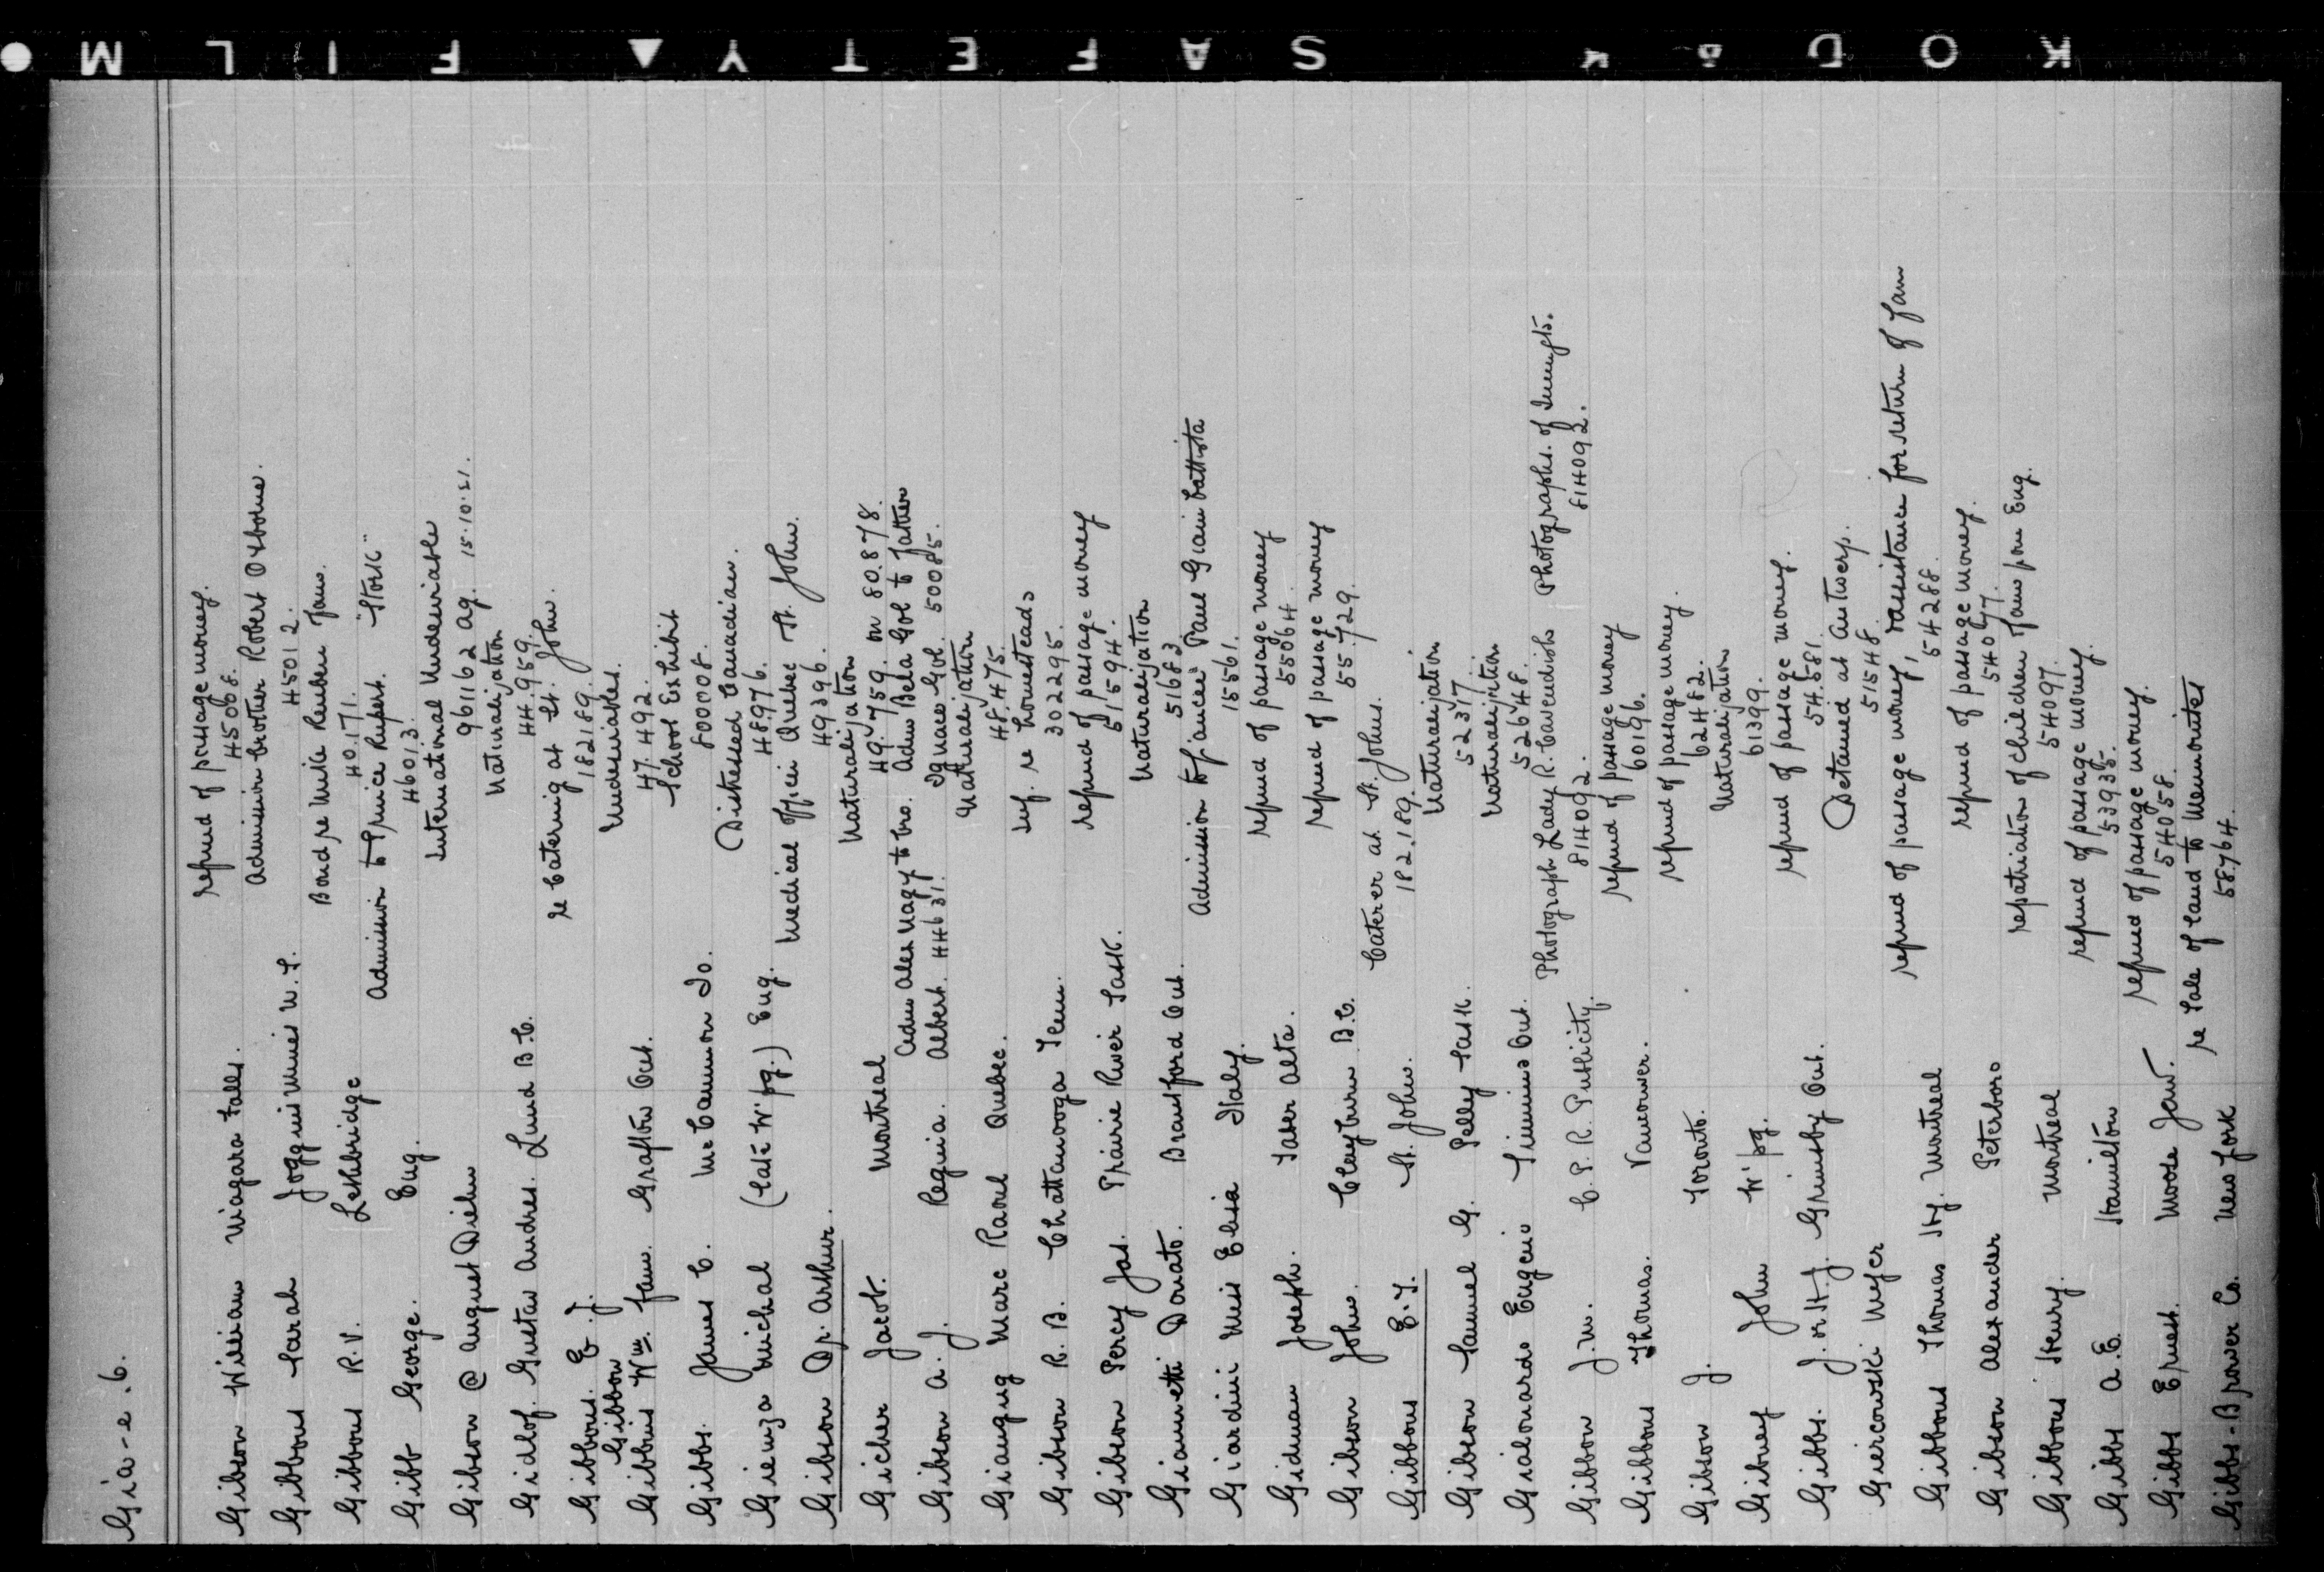 KODAK SAFETY FILM
Gia-e.6.
Gibson William Niagara Falls. refund of passage money.
45068.
Gibbons Sarah Joggins Mines N.S. Admission brother Robert Osborne.
45012.
Gibbons R.V. Lethbridge Bond re Mike Reuben fam.
40.171.
Gibb George. Eng. Admission to Prince Rupert. "Stork"
46013.
Gibson @ August Diehn International Undesirable
961162 Ag. 15.10.21.
Gidlof. Gustav Andres. Lund B.C. Naturalization
44.959.
Gibbons. E.J. re Catering at St. John.
182189.
Gibbon
Gibbins Wm. fam. Grafton Ont. Undesirables.
47.492.
Gibbs. James C. McCammon Io. School Exhibit
800708.
Gienza Michal (late W'pg.) Eng. Distressed Canadian.
48.976.
Gibson Dr. Arthur. Medical Officer Quebec St. John.
49396.
Gicher Jacob. Montreal Naturalization
49.759. on 80.878.
Gibson A.J. Regina. Adm Alex Nagy to bro. Adm Bela Gol to father
Albert. 44631. Ignace Gol. 50085.
Giauque Marc Raoul Quebec. Naturalization
48.475.
Gibson R.B. Chattanooga Tenn. inf. re homesteads
302295.
Gibson Percy Jas. Prairie River Sask. refund of passage money
51594.
Giannetti Donato. Brantford Ont. Naturalization
51683
Giardini Miss Elisa Italy. Admission to fiancee Paul Giain battista
15561.
Gidman Joseph. Taber Alta. refund of passage money
55064.
Gibson John. Clayburn B.C. refund of passage money
55.729.
Gibbons E.T. St. John. Caterer at St. Johns.
182.189.
Gibson Samuel G. Pelly Sask. Naturalization
52317.
Gialonardo Eugenio Timmins Ont. Naturalization
52648.
Gibbon J.M. C.P.R. Publicity. Photograph Lady R. Cavendish Photographs. of Immgts.
814092. 814092.
Gibbons Thomas. Vancouver. refund of passage money
60196.
Gibson J. Toronto. refund of passage money.
62482.
Gibney John W'pg. Naturalization
61399.
Gibbs. J. or H.J. Grimsby Ont. refund of passage money.
54.581
Giercowski Mejer Detained at Antwerp.
51548.
Gibbons Thomas Hy. Montreal refund of passage money, assistance for return of fam
54288.
Gibson Alexander Peterboro refund of passage money.
54077.
Gibbons Henry. Montreal repatriation of children fam from Eng.
54097.
Gibbs A.E. Hamilton refund of passage money.
53935.
Gibbs Ernest. Moose Jaw. refund of passage money.
54058.
Gibbs-Brower Co. New York re Sale of land to Mennonites
58764.